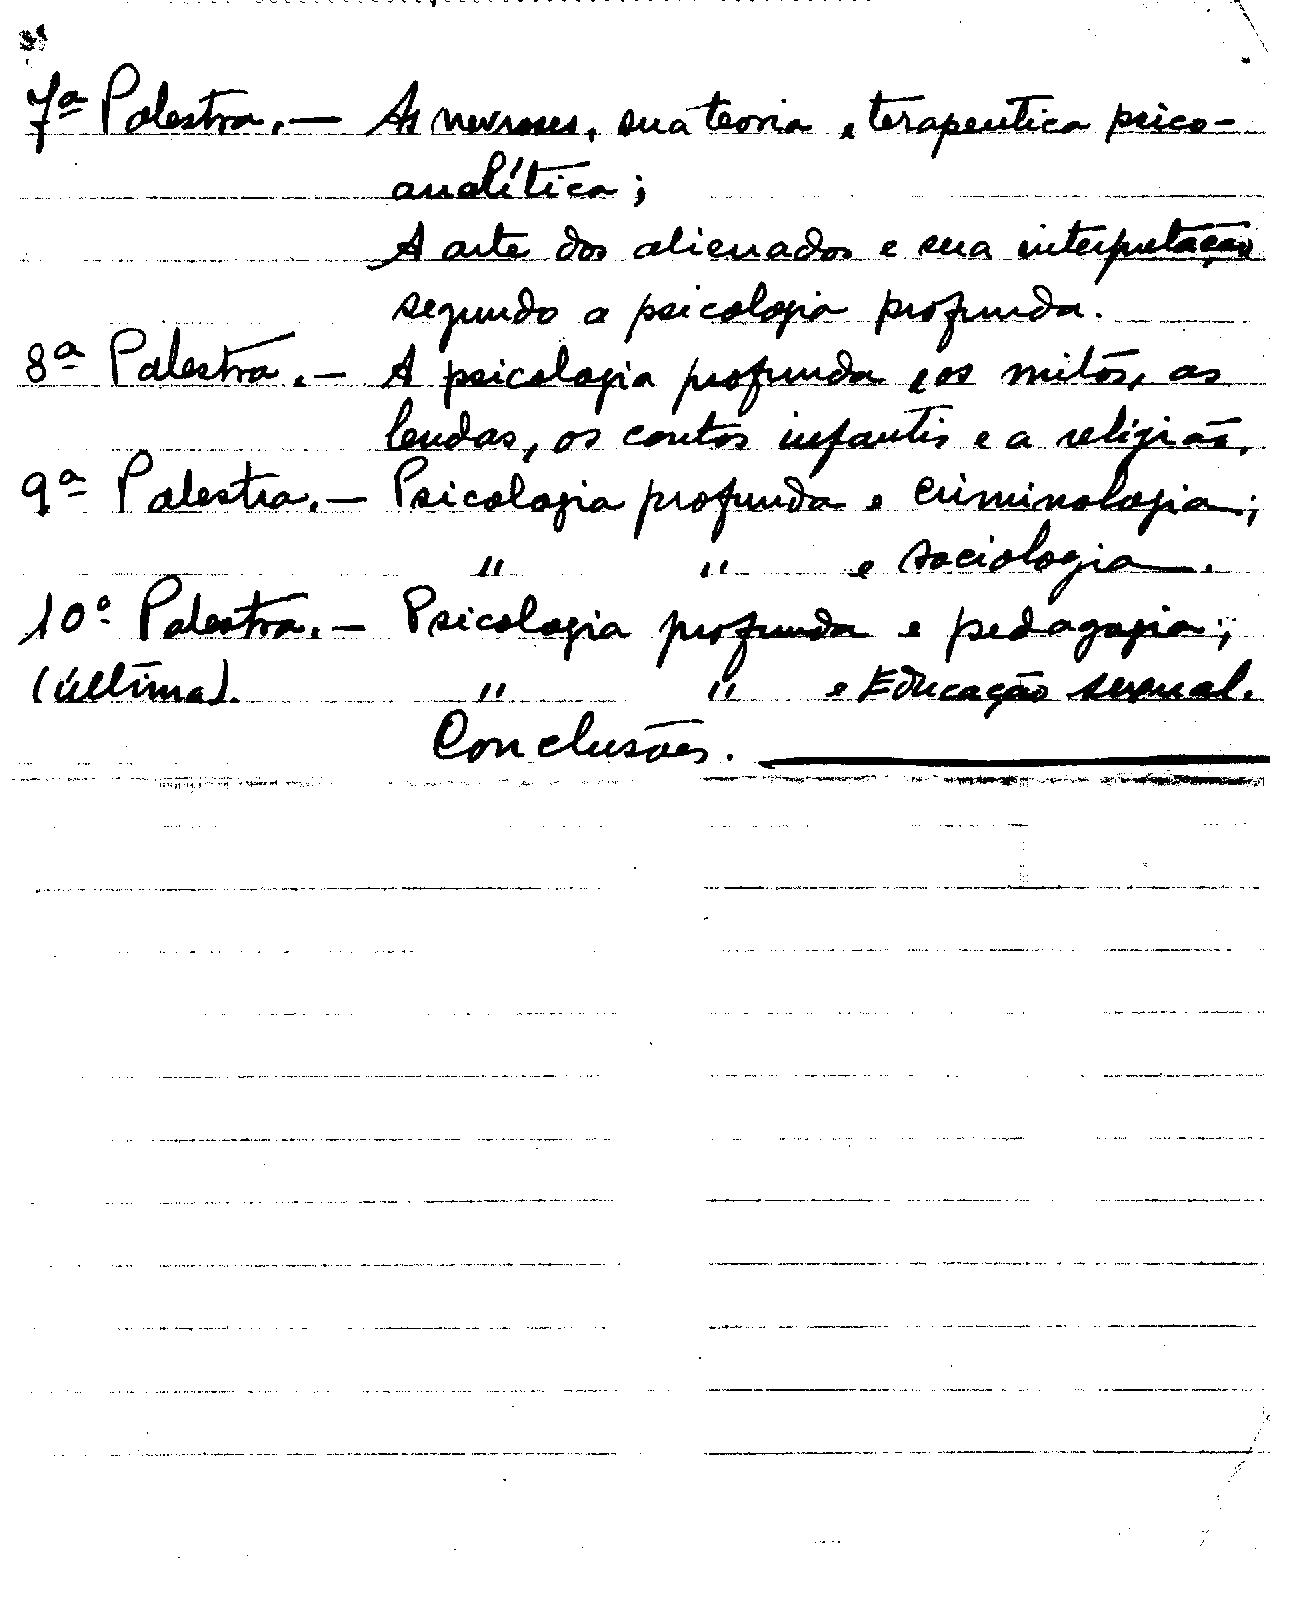 7ª Palestra.— As nevroses, sua teoria e terapeutica psico-
analítica;
A arte dos alienados e sua interpretação
segundo a psicologia profunda.
8ª Palestra.— A psicologia profunda, os mitos, as
lendas, os contos infantis e a religião.
9ª Palestra.— Psicologia profunda e criminologia;
" " e sociologia.
10ª Palestra.— Psicologia profunda e pedagogia;
(última). " " e Educação sexual.
Conclusões.